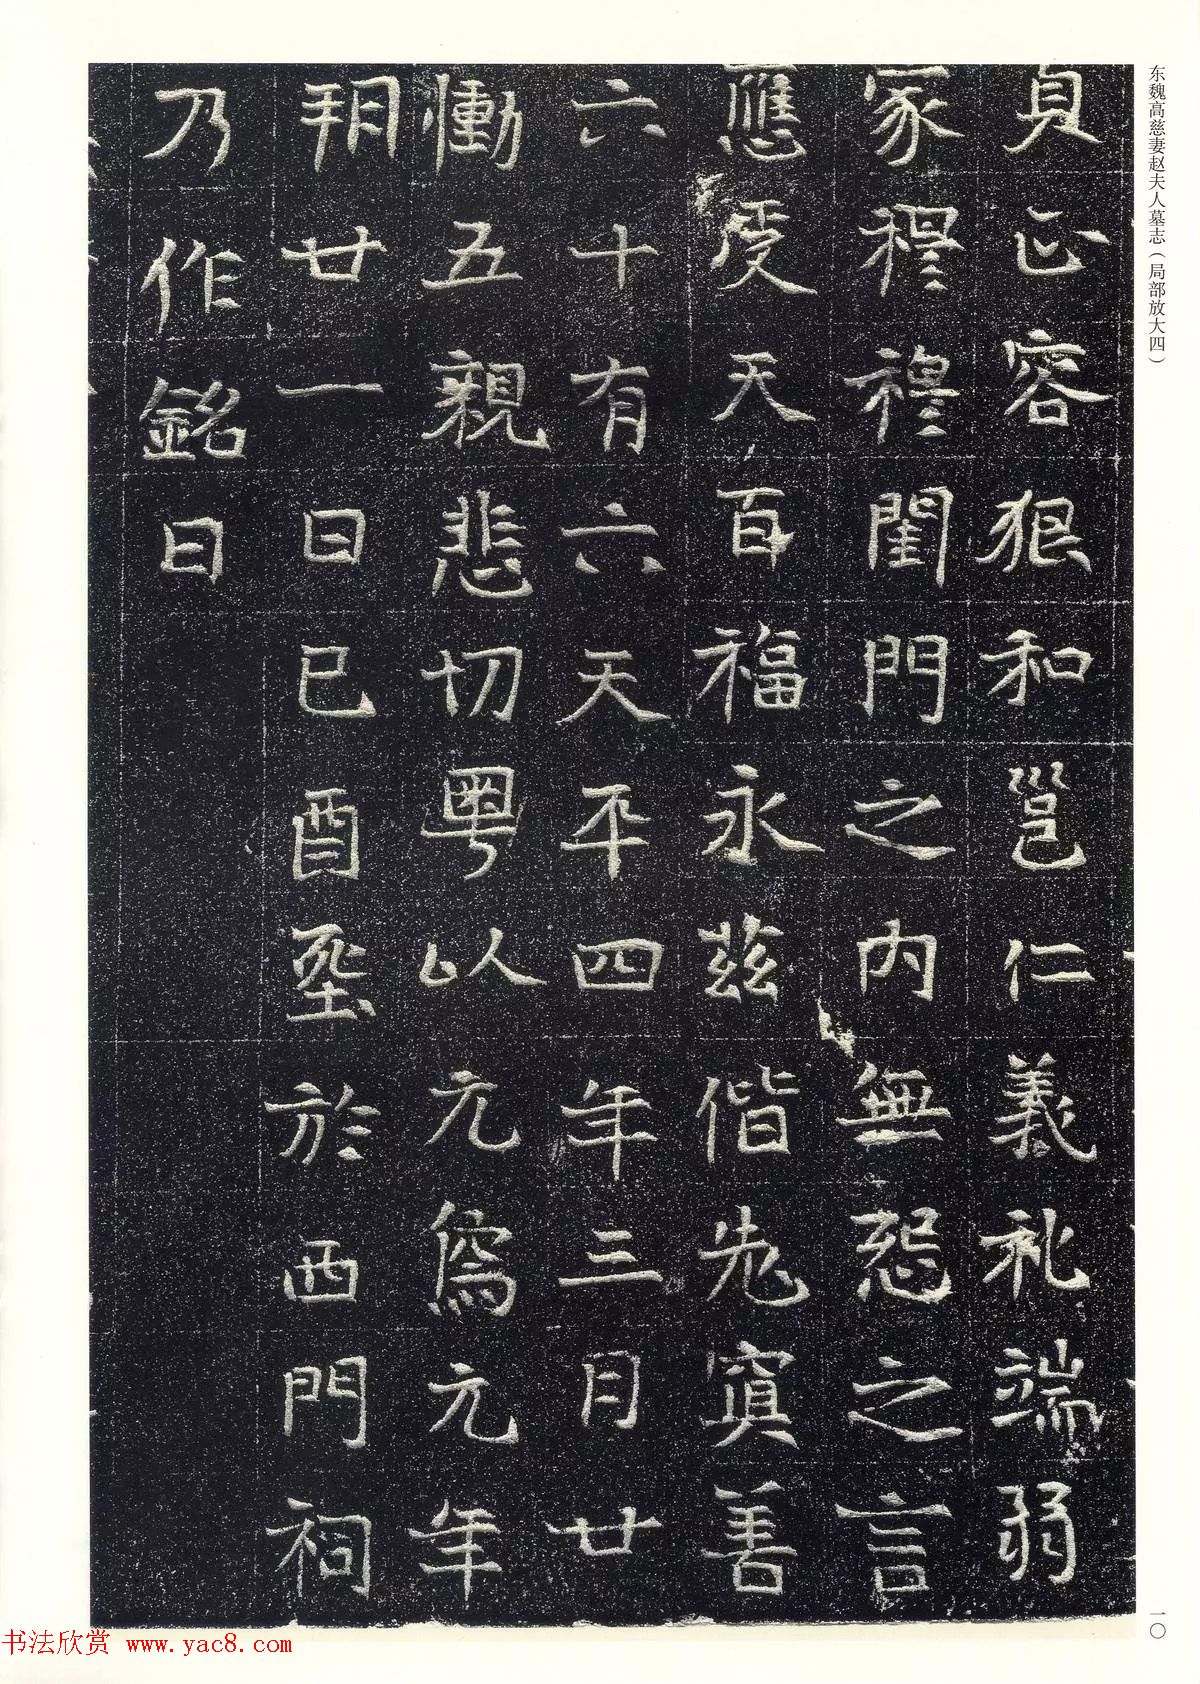 东魏高慈妻赵夫人墓志（局部放大四）
貞正容狠和邕仁義礼端弱
家穆穆閨門之內無怨之言
應受天百福永茲偕老寘善
六十有六天平四年三月廿
慟五親悲切粤以元爲元年
朔廿一日己酉堲於西門祠
乃作銘曰
一〇
书法欣赏 www.yac8.com